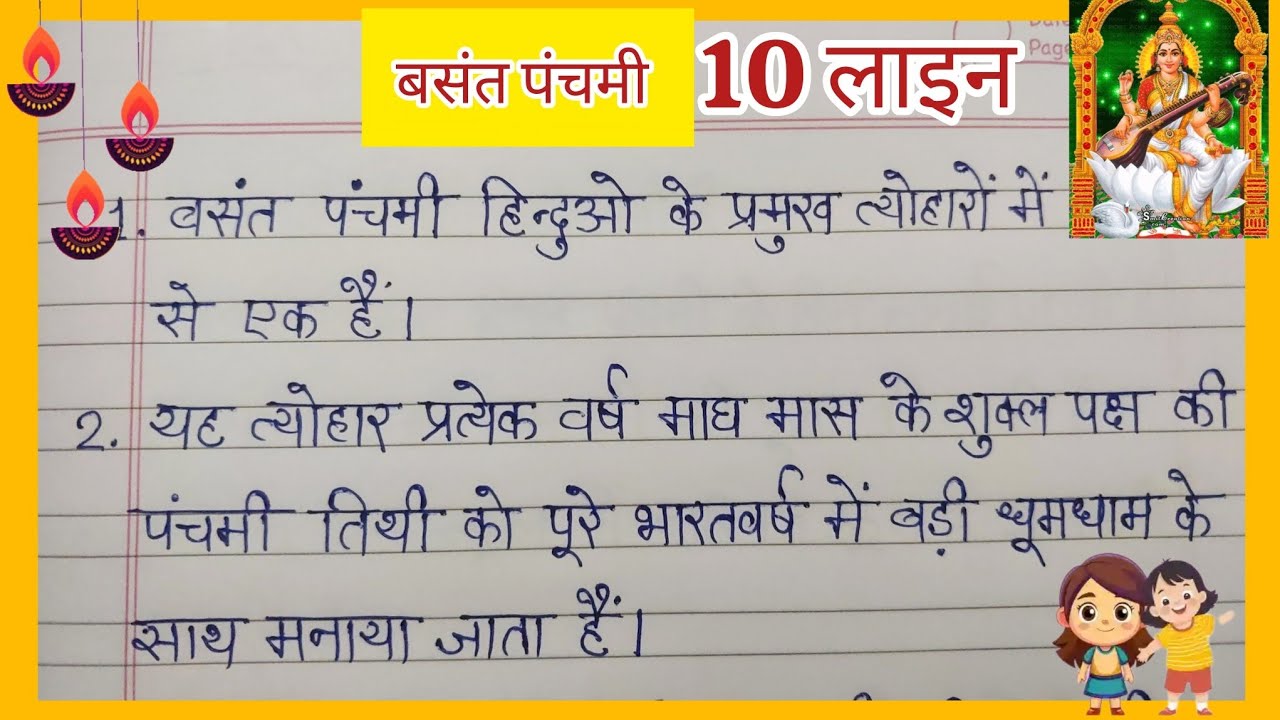 बसंत पंचमी 10 लाइन
Page
1. बसंत पंचमी हिन्दुओ के प्रमुख त्योहारों में
से एक हैं।
2. यह त्योहार प्रत्येक वर्ष माघ मास के शुक्ल पक्ष की
पंचमी तिथी को पूरे भारतवर्ष में बड़ी धूमधाम के
साथ मनाया जाता हैं।